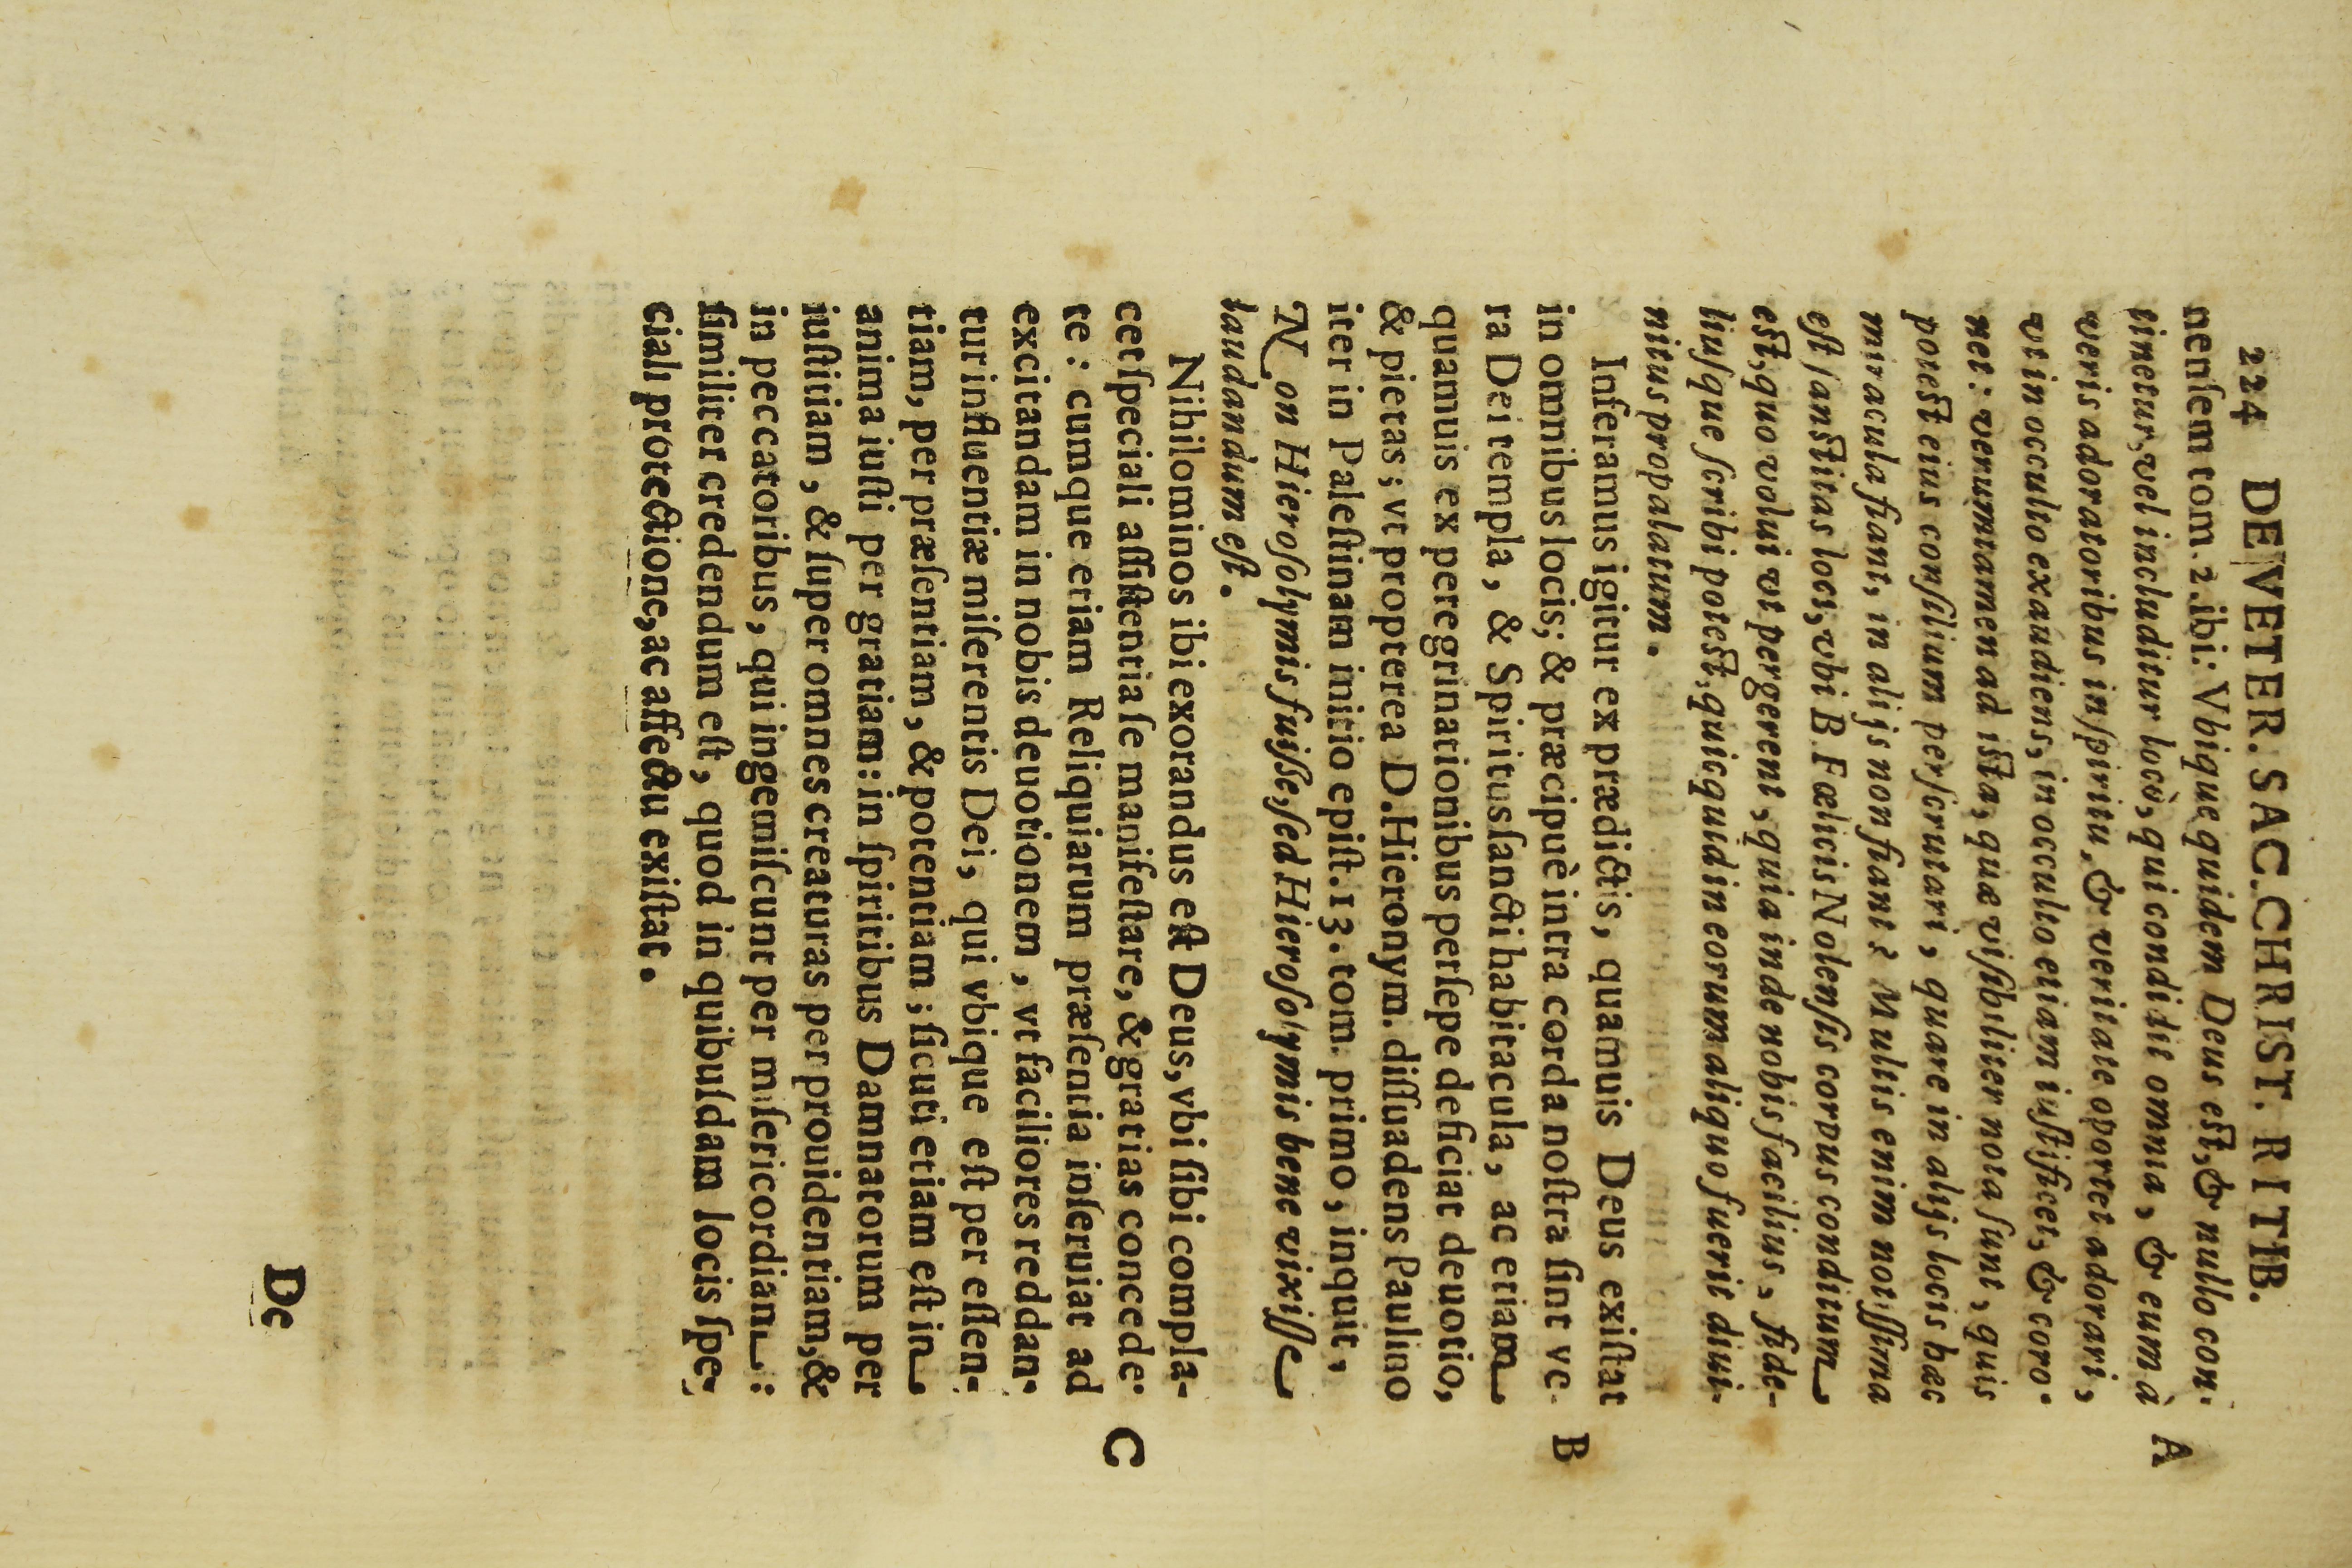 224 DE VETER. SAC. CHRIST. RITIB.
nenſem tom. 2. ibi: Vbique quidem Deus eſt, & nullo con-
tinetur, vel includitur locò, qui condidit omnia, & eum à
veris adoratoribus in ſpiritu, & veritate oportet adorari,
vt in occulto exaudiens, in occulto etiam iuſtificet, & coro-
net: verumtamen ad iſta, quæ viſibiliter nota ſunt, quis
poteſt eius conſilium perſcrutari, quare in alijs locis hæc
miracula fiant, in alijs non fiant? Multis enim notiſſima
eſt ſanctitas loci, vbi B. Fælicis Nolenſis corpus conditum
eſt, quo volui vt pergerent, quia inde nobis facilius, fide-
liuſque ſcribi poteſt, quicquid in eorum aliquo fuerit diui-
nitus propalatum.
Inferamus igitur ex prædictis, quamuis Deus exiſtat
in omnibus locis; & præcipuè intra corda noſtra ſint ve-
ra Dei templa, & Spiritus ſancti habitacula, ac etiam
quamuis ex peregrinationibus perſepe deficiat deuotio,
& pietas; vt propterea D. Hieronym. diſſuadens Paulino
iter in Paleſtinam initio epiſt. 13. tom. primo, inquit,
Non Hieroſolymis fuiſſe, ſed Hieroſolymis bene vixiſſe
laudandum eſt.
Nihilominos ibi exorandus eſt Deus, vbi ſibi compla-
cet ſpeciali aſſiſtentia ſe manifeſtare, & gratias concede-
te: cumque etiam Reliquiarum præſentia inſeruiat ad
excitandam in nobis deuotionem, vt faciliores reddan-
tur influentiæ miſerentis Dei, qui vbique eſt per eſſen-
tiam, per præſentiam, & potentiam; ſicuti etiam eſt in
anima iuſti per gratiam: in ſpiritibus Damnatorum per
iuſtitiam, & ſuper omnes creaturas per prouidentiam, &
in peccatoribus, qui ingemiſcunt per miſericordiam:
ſimiliter credendum eſt, quod in quibuſdam locis ſpe-
ciali protectione, ac affectu exiſtat.
A
B
C
De